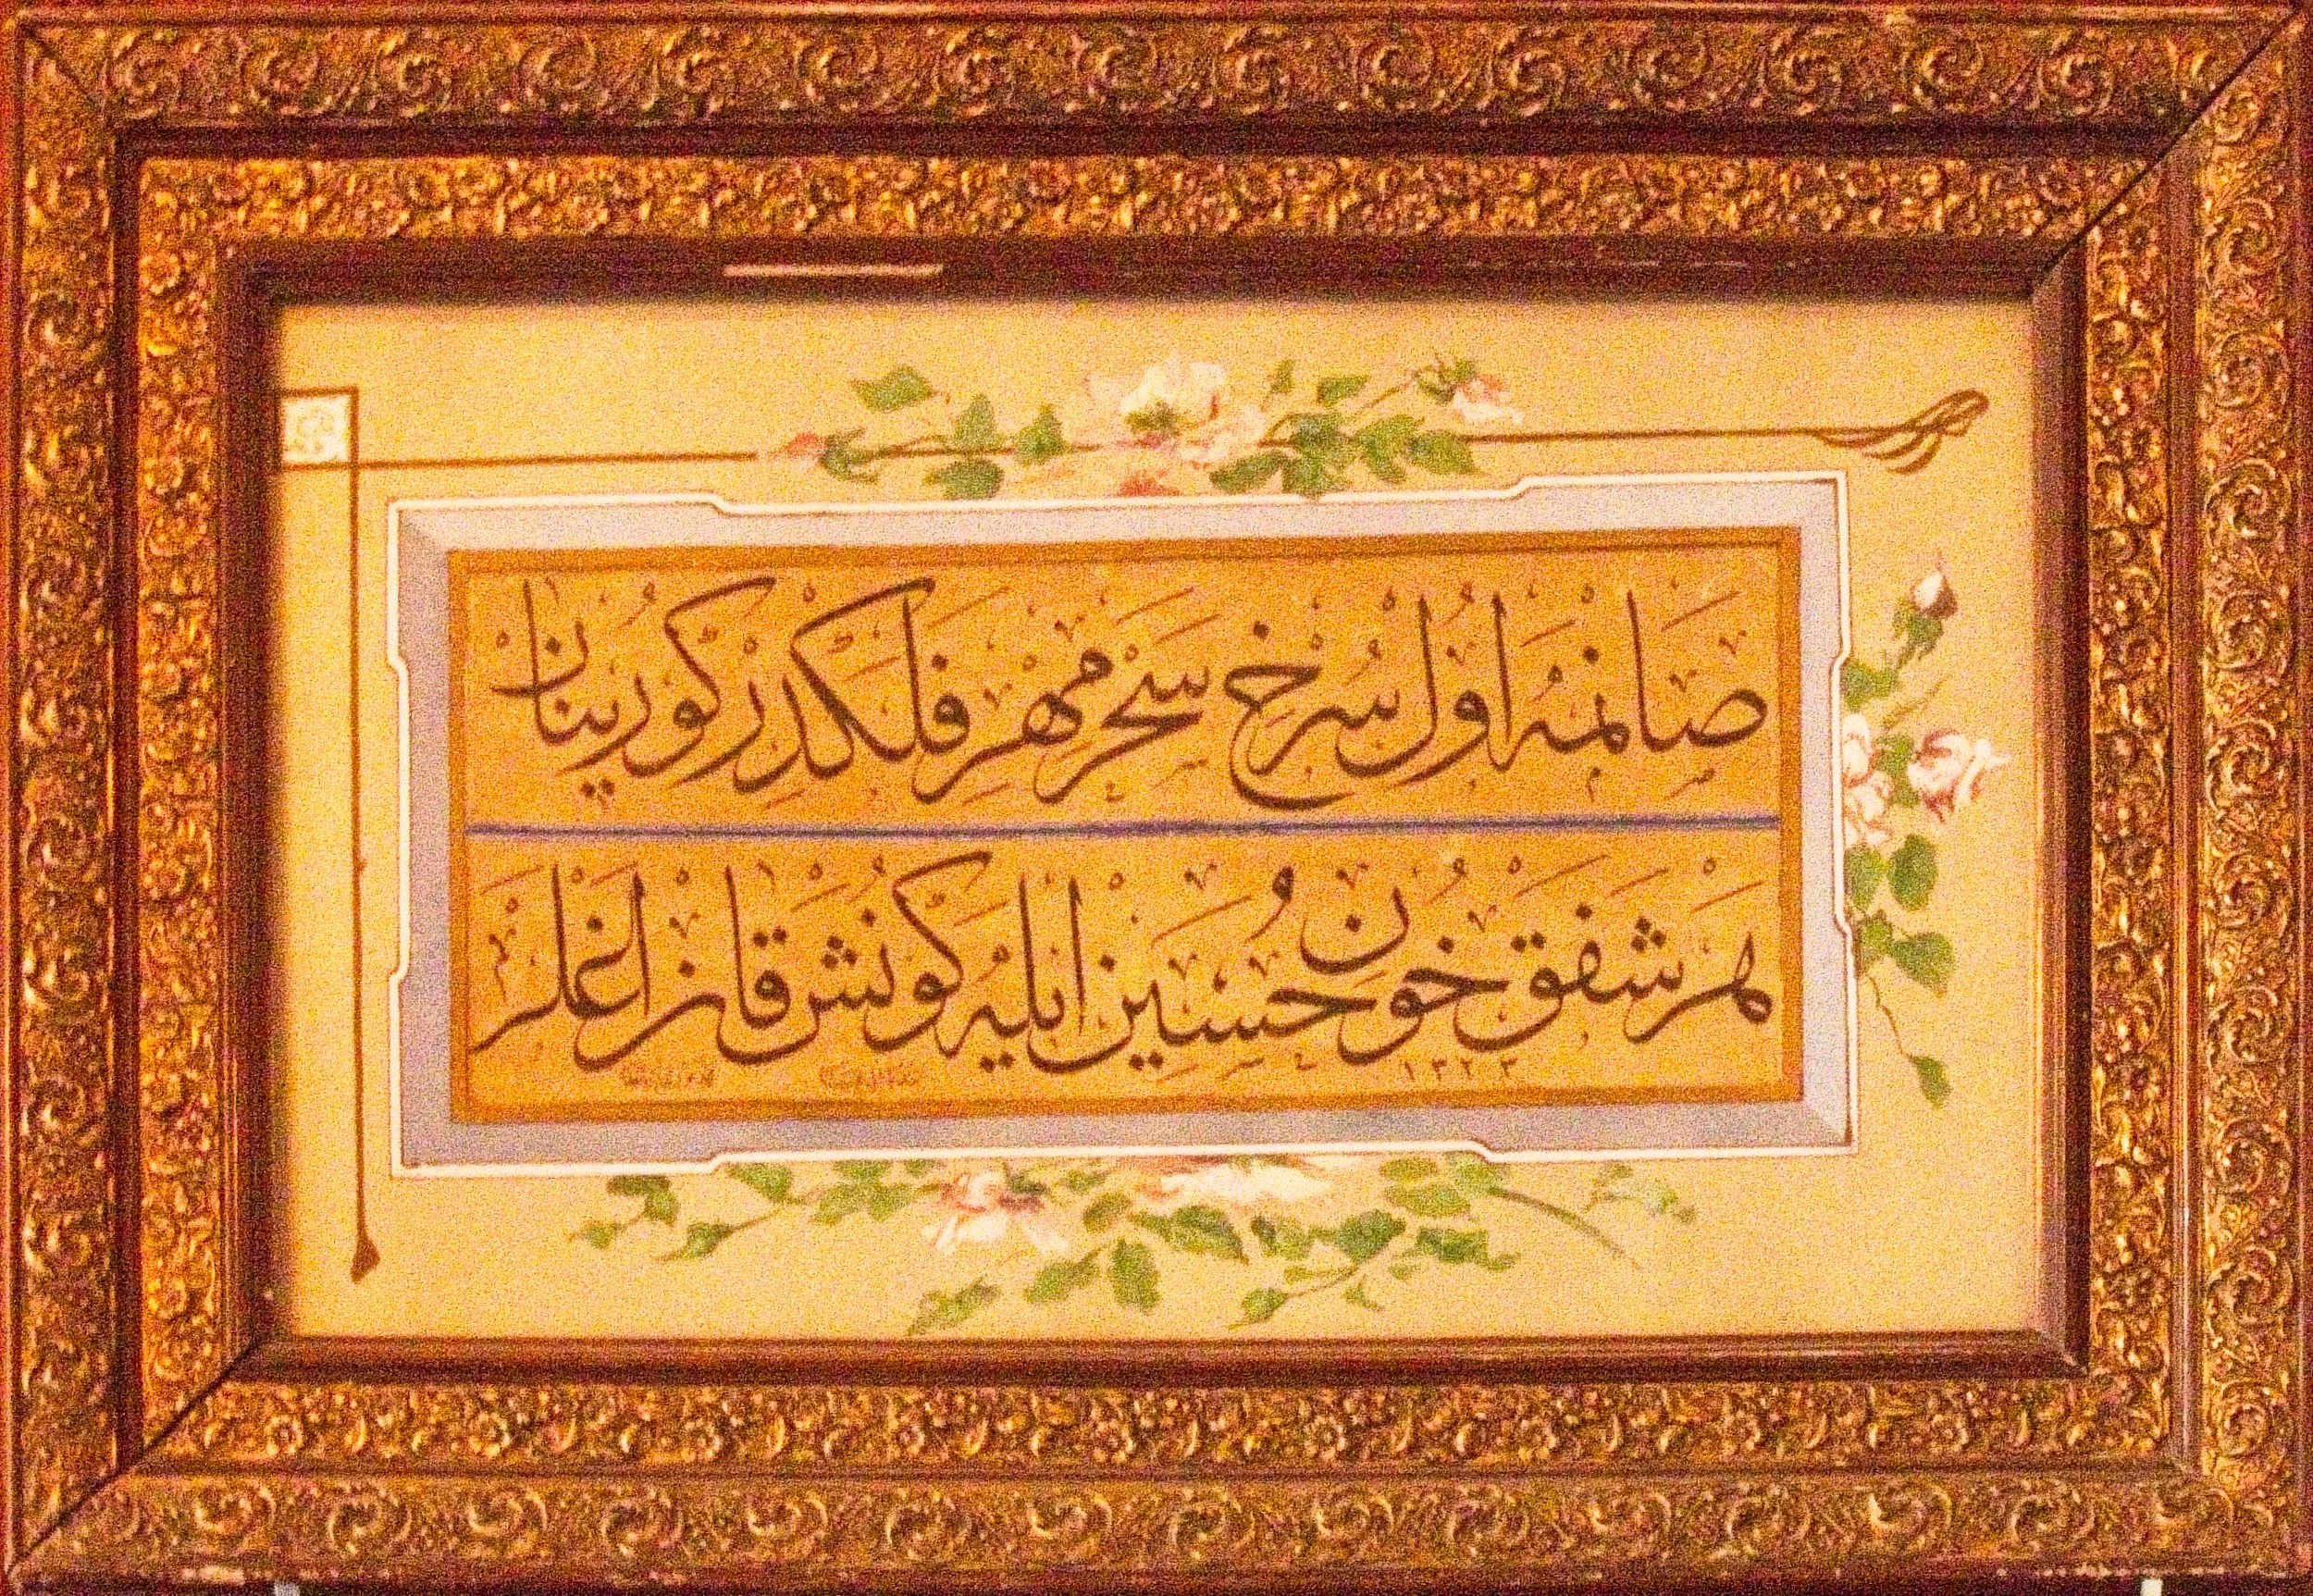 صانمه اول سرخ سحر مهر فلكدر كورينان
هر شفق خون حسين ايله كونش قان اغلر
١٣٢٣